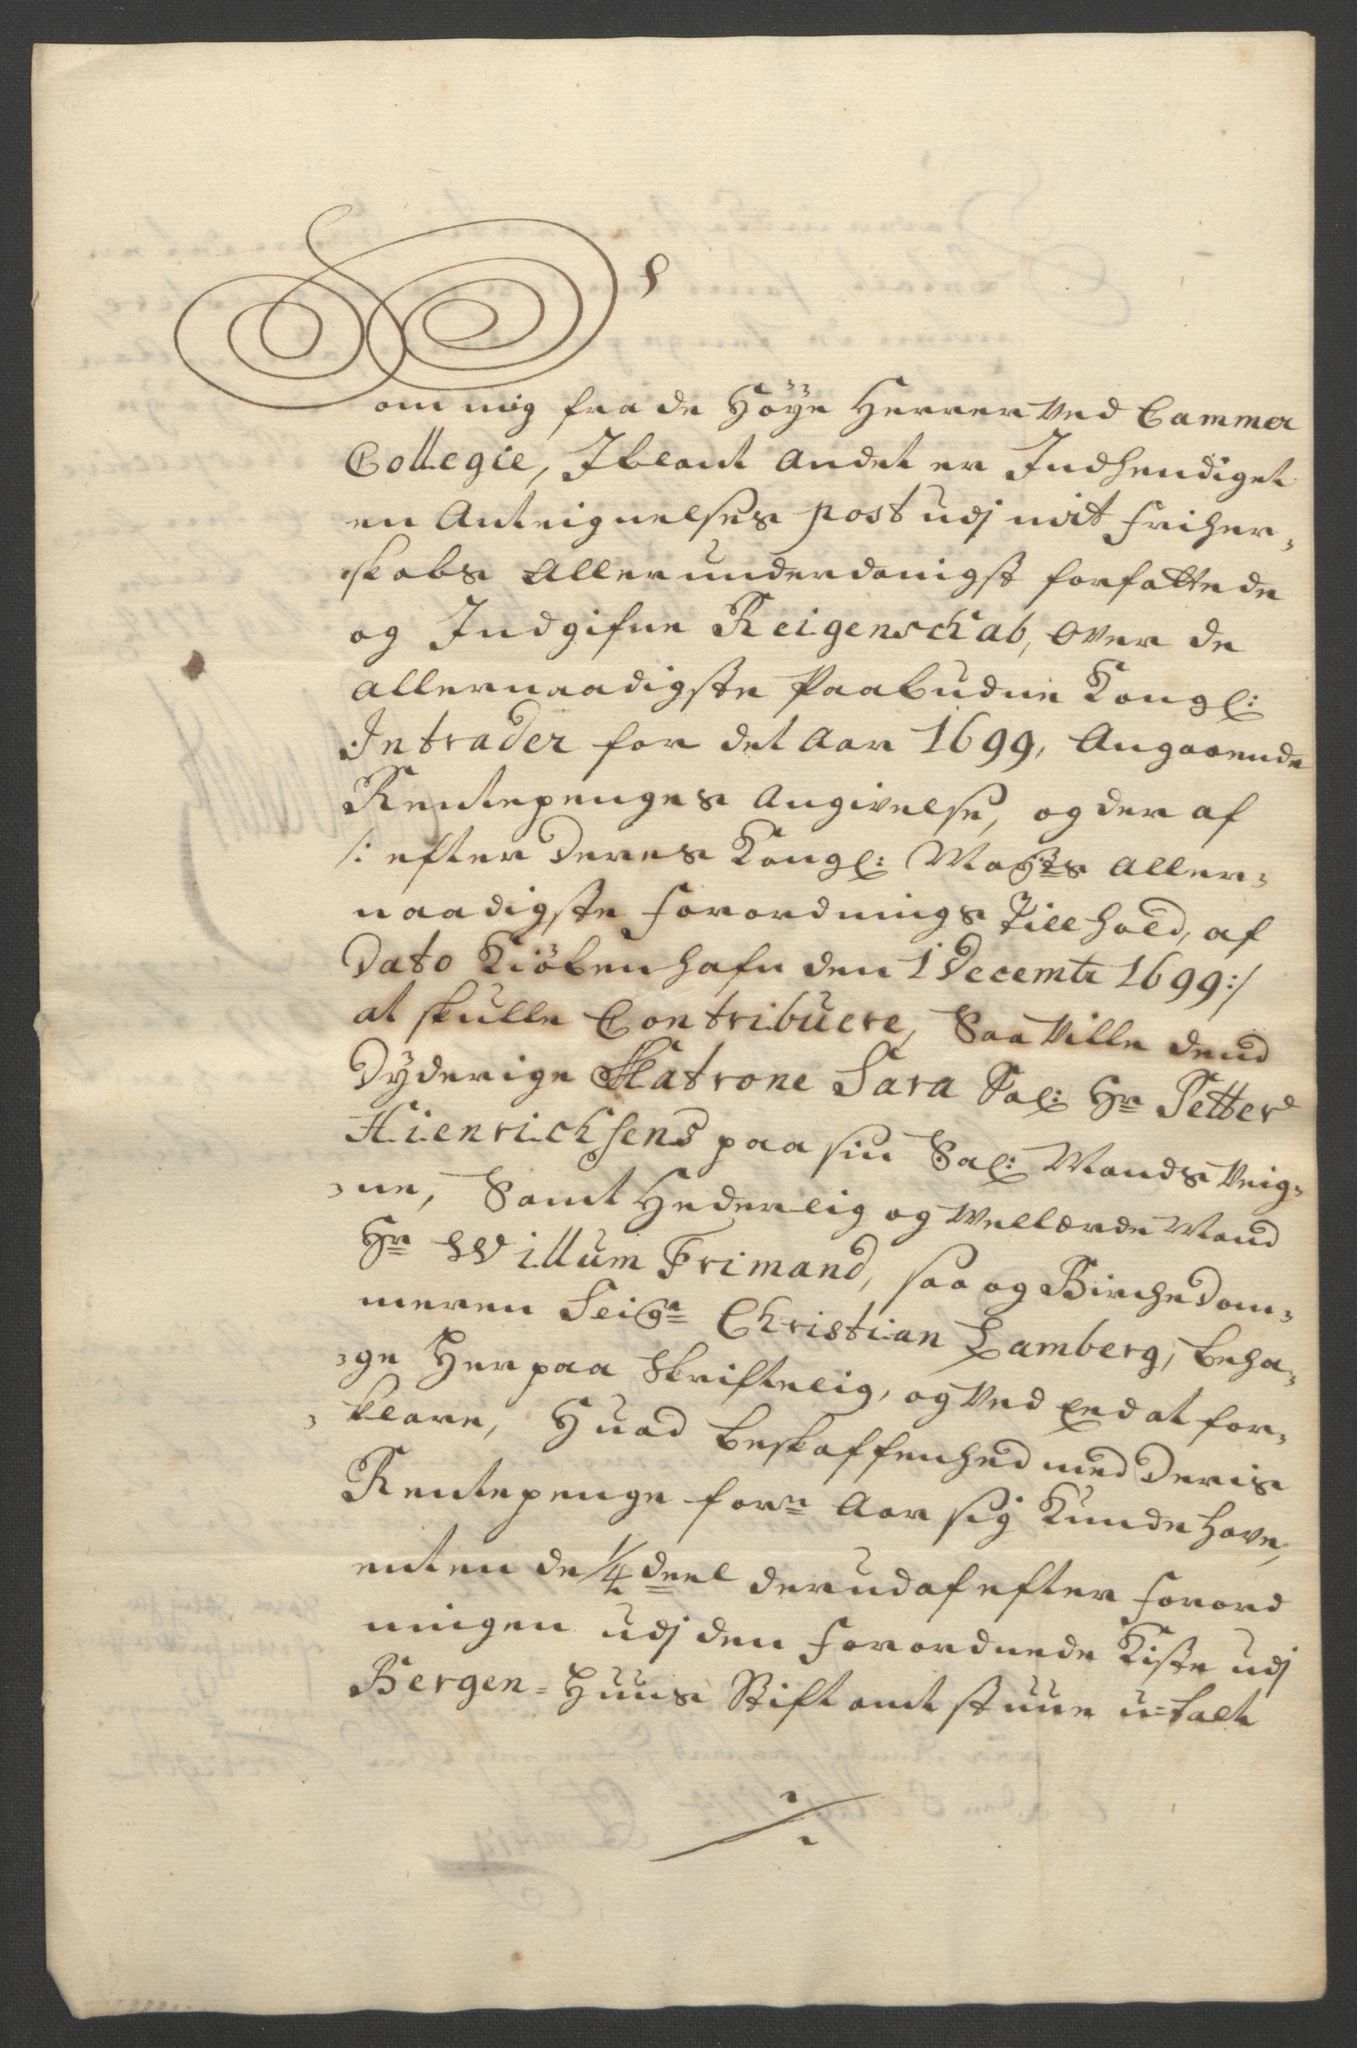 Som mig fra de Höÿe Herrer Ved Cammer
Collegie, Iblant Andet er Indhendiget
en Anteignelses post udj mit friher-
skabs Allerunderdanigst forfattede
og Indgifne Reigenschab, over de
Allernaadigste Paabudne Kongl:
Intrader for det Aar 1699, Angaaende
Rentepenges Angivelse, og der af
/: efter Deres Kongl: Mayts Aller-
naadigste forordnings Tillhold, af
Dato Kiöbenhafn den 1 Decembr 1699 :/
at skulle Contribuere, Saa Ville dend
Dÿderige Matrone Sara Sal: Hr Petter
Hienrichsens paa sin Sal: Mands Veig-
ne, Samt Hederlig og Wellærde Mand
Hr Willum Frimand, saa og Birchedom-
meren Seigr Christian Lamberg, beha-
ge Her paa Skriftelig, og Ved Eed at for-
klare, Huad beskaffenhed med Deris
Rentepenge forn Aar sig Kunde have,
enten de 1/4 deel derudaf efter forord
ningen udj den forordnede Kiste udj
Bergen-Huus Stiftamtstuue u-talt